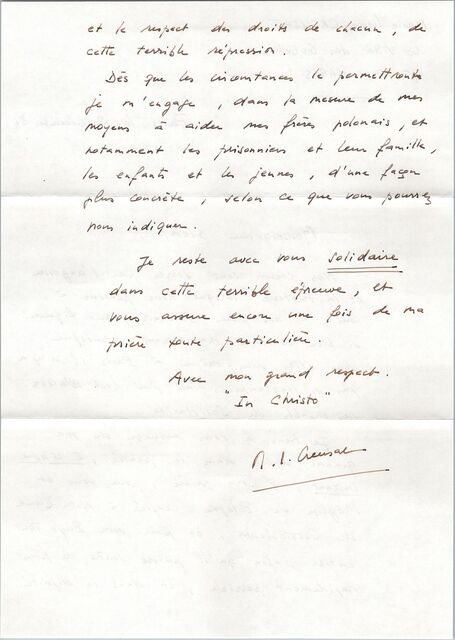 et le respect des droits de chacun, de
cette terrible répression.
Dès que les circonstances le permettront
je m'engage, dans la mesure de mes
moyens à aider mes frères polonais, et
notamment les prisonniers et leur famille,
les enfants et les jeunes, d'une façon
plus concrète, selon ce que vous pourrez
nous indiquer.
Je reste avec vous solidaire
dans cette terrible épreuve, et
vous assure encore une fois de ma
prière toute particulière.
Avec mon grand respect.
"In Christo"